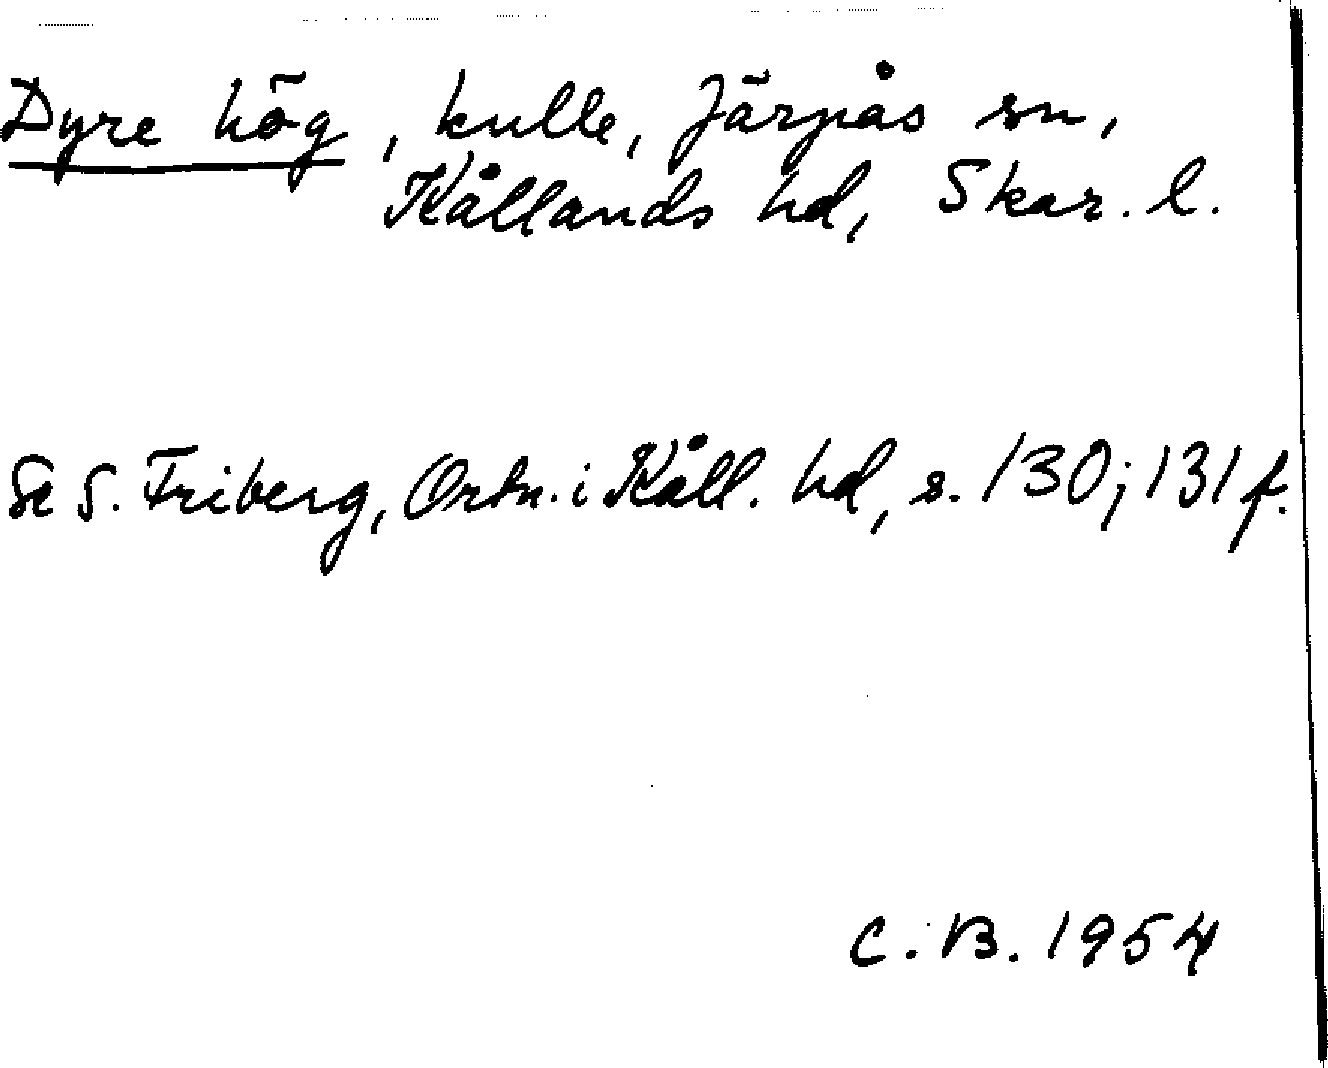 Dyre hög, kulle, Järpås sn,
Kållands hd, Skar. l.
Se S. Friberg, Ortn. i Kåll. hd, s. 130; 131 f.
C. B. 1954